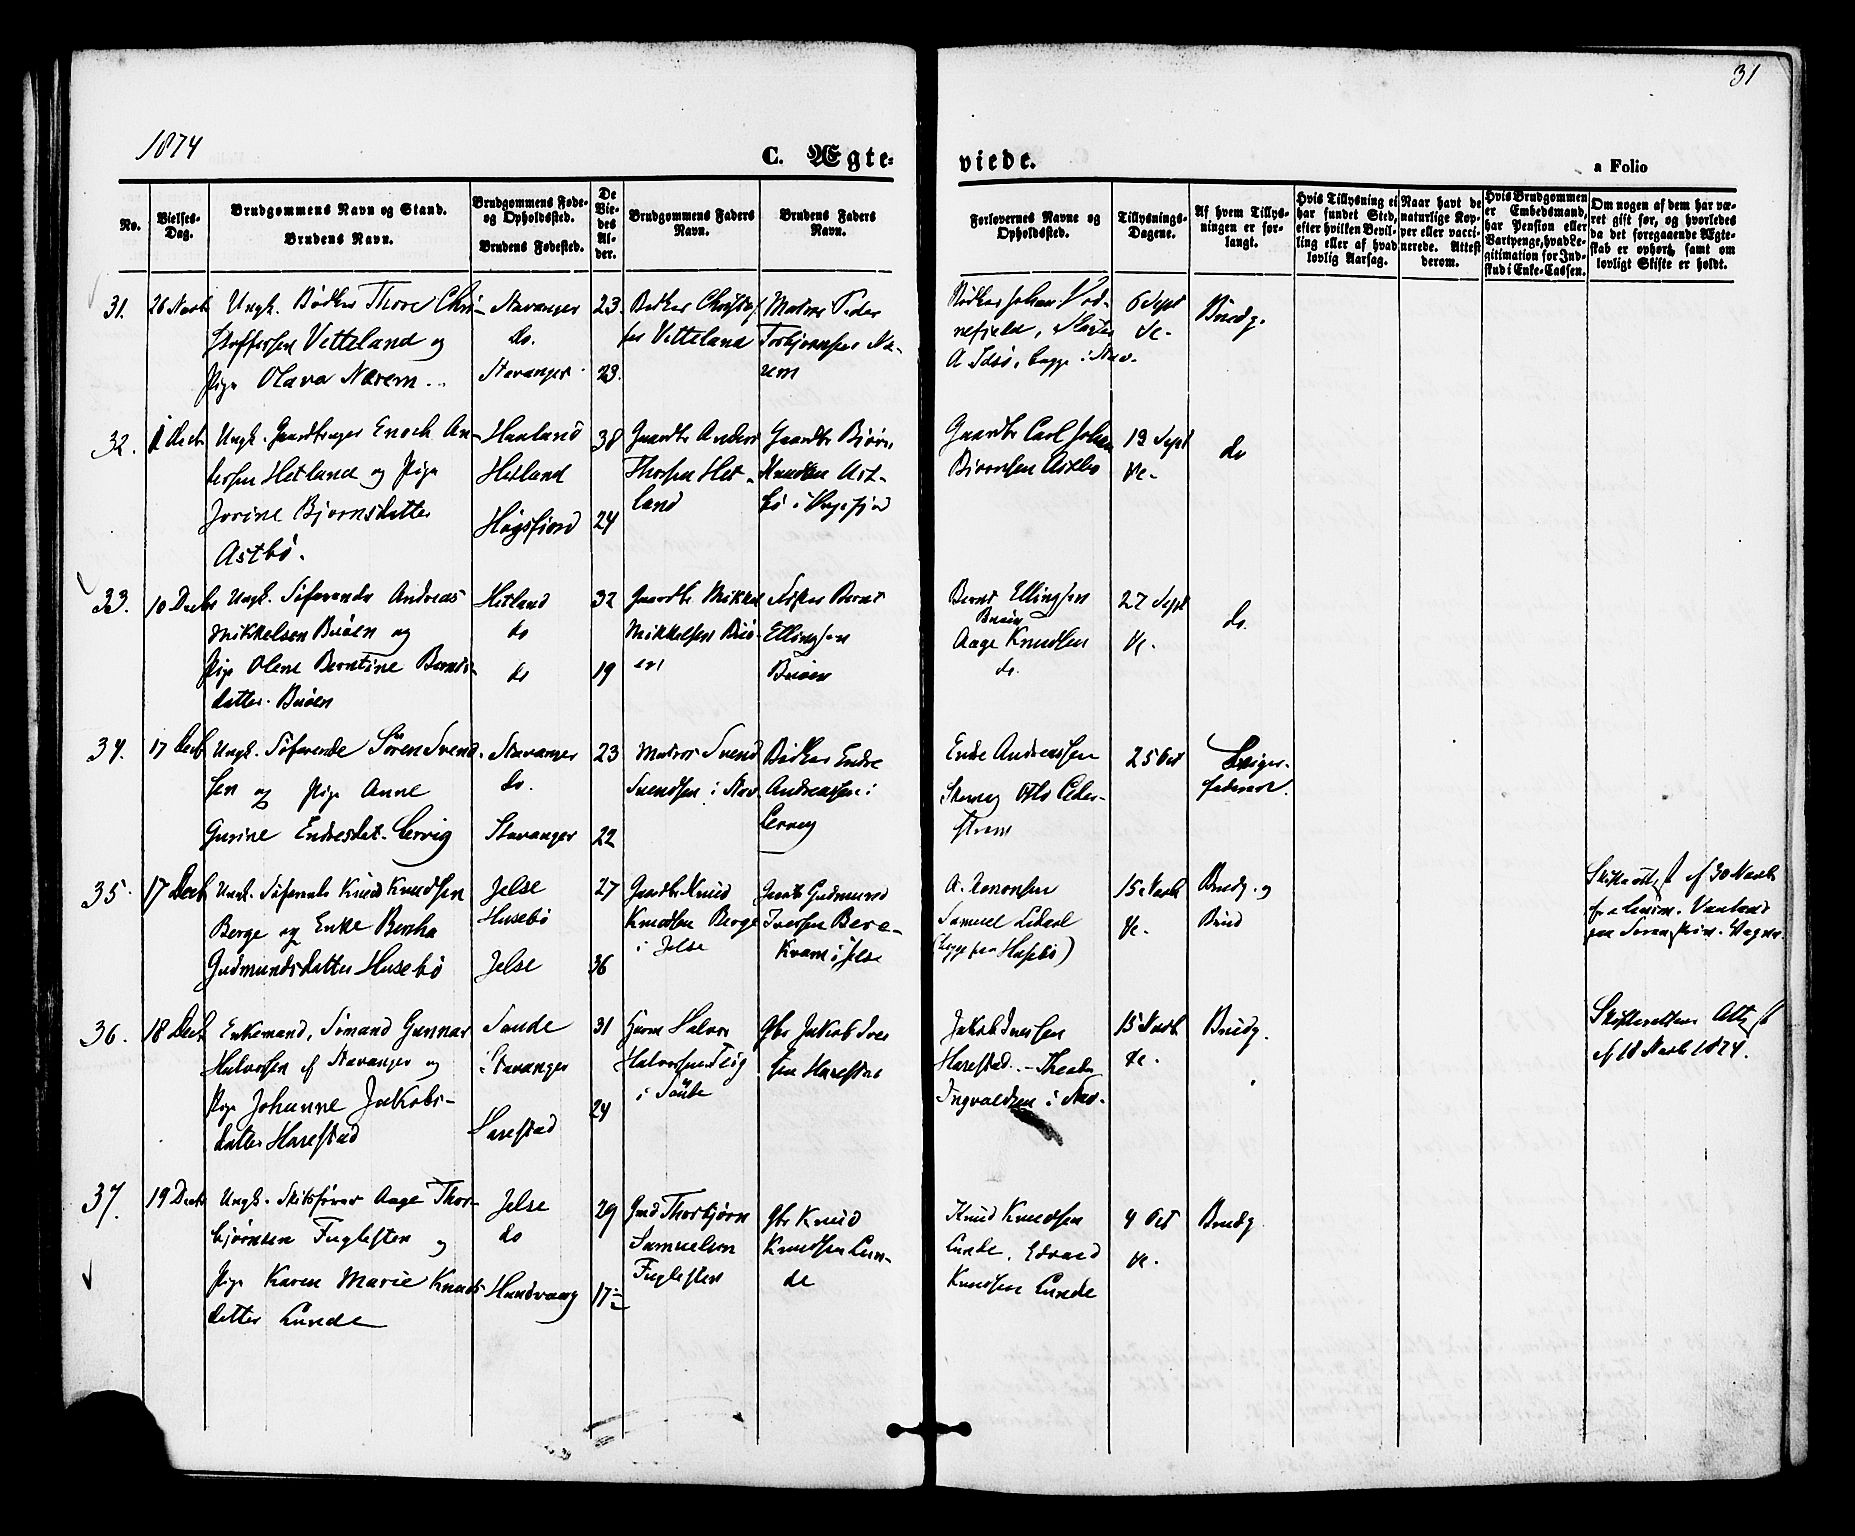 31
1874
C. Ægteviede.
a Folio
No.
Vielses-Dag.
Brudgommens Navn og Stand.
Brudens Navn.
Brudgommens Føde- og Opholdssted.
Brudens Fødested.
De Viedes Alder.
Brudgommens Faders Navn.
Brudens Faders Navn.
Forlovernes Navne og Opholdssted.
Tillysnings-Dagene.
Af hvem Tillysningen er forlangt.
Hvis Tillysning ei har fundet Sted, efter hvilken Bevilling eller af hvad lovlig Aarsag.
Naar havt de naturlige Kopper eller vaccinerede. Attest derom.
Hvis Brudgommen er Embedsmand, har Pension eller Vartpenge, hvad Legitimation for Indskud i Enke-Cassen.
Om nogen af dem har været gift før, og hvorledes da det foregaaende Ægteskab er ophørt, samt om lovligt Skifte er holdt.
31. 26 Novb
Ungk. Bødker Thore Chri-
stoffersen Vetteland og
Pige Olava Norem
Stavanger
do.
Stavanger
23.
23.
Bødker Christof
sen Vetteland
Matros Peder
Torbjørnsen No-
rem
Bødker Johan
A. Idsø, begge i Stav.
6 Sept
&c.
Brudg.
32. 1 Decb
Ungk. Gaardbruger Enoch An-
dersen Hetland og Pige
Jorine Bjørnsdatter
Astbø.
Haaland
Hetland
Høgsfjord
38
24
Gaardbr Anders
Thorsen Het-
land
Gaardbr Bjørn
Knudsen Ast-
bø i Høgsfjord
Gaardbr Carl Johan
Bjørnsen Astbø
19 Sept
&c.
do
33. 10 Decbr
Ungk. Søfarende Andreas
Mikkelsen Buøen og
Pige Olene Berntine Bernts-
datter Buøen
Hetland
do
do
32
19
Gaardbr Mikkel
Mikkelsen Buø-
en
Fisker Bernt
Ellingsen
Buøen
Bernt Ellingsen
Buøen
Aage Knudsen
do.
27 Sept
&c.
do.
34. 17 Decb
Ungk. Søfarende Søren Svend-
sen og Pige Anne
Gurine Endresdat. Lervig
Stavanger
do.
Stavanger
23
22
Matros Svend
Svendsen i Stav.
Bødker Endre
Andreassen i
Lervig
Endre Andreassen
Otto Ceder-
strøm
25 Oct
Sviger-
faderen.
35. 17 Decb
Ungk. Søfarende Knud Knudsen
Berge og Enke Bertha
Gudmundsdatter Husebø
Jelse
Husebø
Jelse
27
36
Gaardbr Knud
Knudsen Berge
i Jelse
Gaardbr Gudmund
Iversen Bere-
kvam i Jelse
A. Aanonsen
Samuel
(begge paa Husebø)
15 Novb
&c.
Brudg. og
Brud
Skifteattest af 30 Novb
36. 18 Decb
Enkemand, Sømand Gunnar
Halvorsen af Stavanger og
Pige Johanne Jakobs-
datter Harestad
Sande
i Stavanger
Harestad
31
24
Halvor
Halvorsen
i Saude
Gbr Jakob Iver
sen Harestad
Jakob Iversen
Harestad. - Theodor
Ingvaldsen i Stav.
15 Novb
&c.
Brudg.
Skifterettens Attest
af 18 Novb 1874.
37. 19 Decb
Ungk. Skibsfører Aage Thor-
bjørnsen Fuglesten og
Pige Karen Marie Knuds-
datter Lunde
Jelse
do
Hundvaag
29
17½
Gmd Thorbjørn
Samuelsen
Fuglesten
Gbr Knud
Knudsen Lun-
de
Knud Knudsen
Lunde, Edvard
Knudsen Lunde
4 Oct
&c.
Brudg